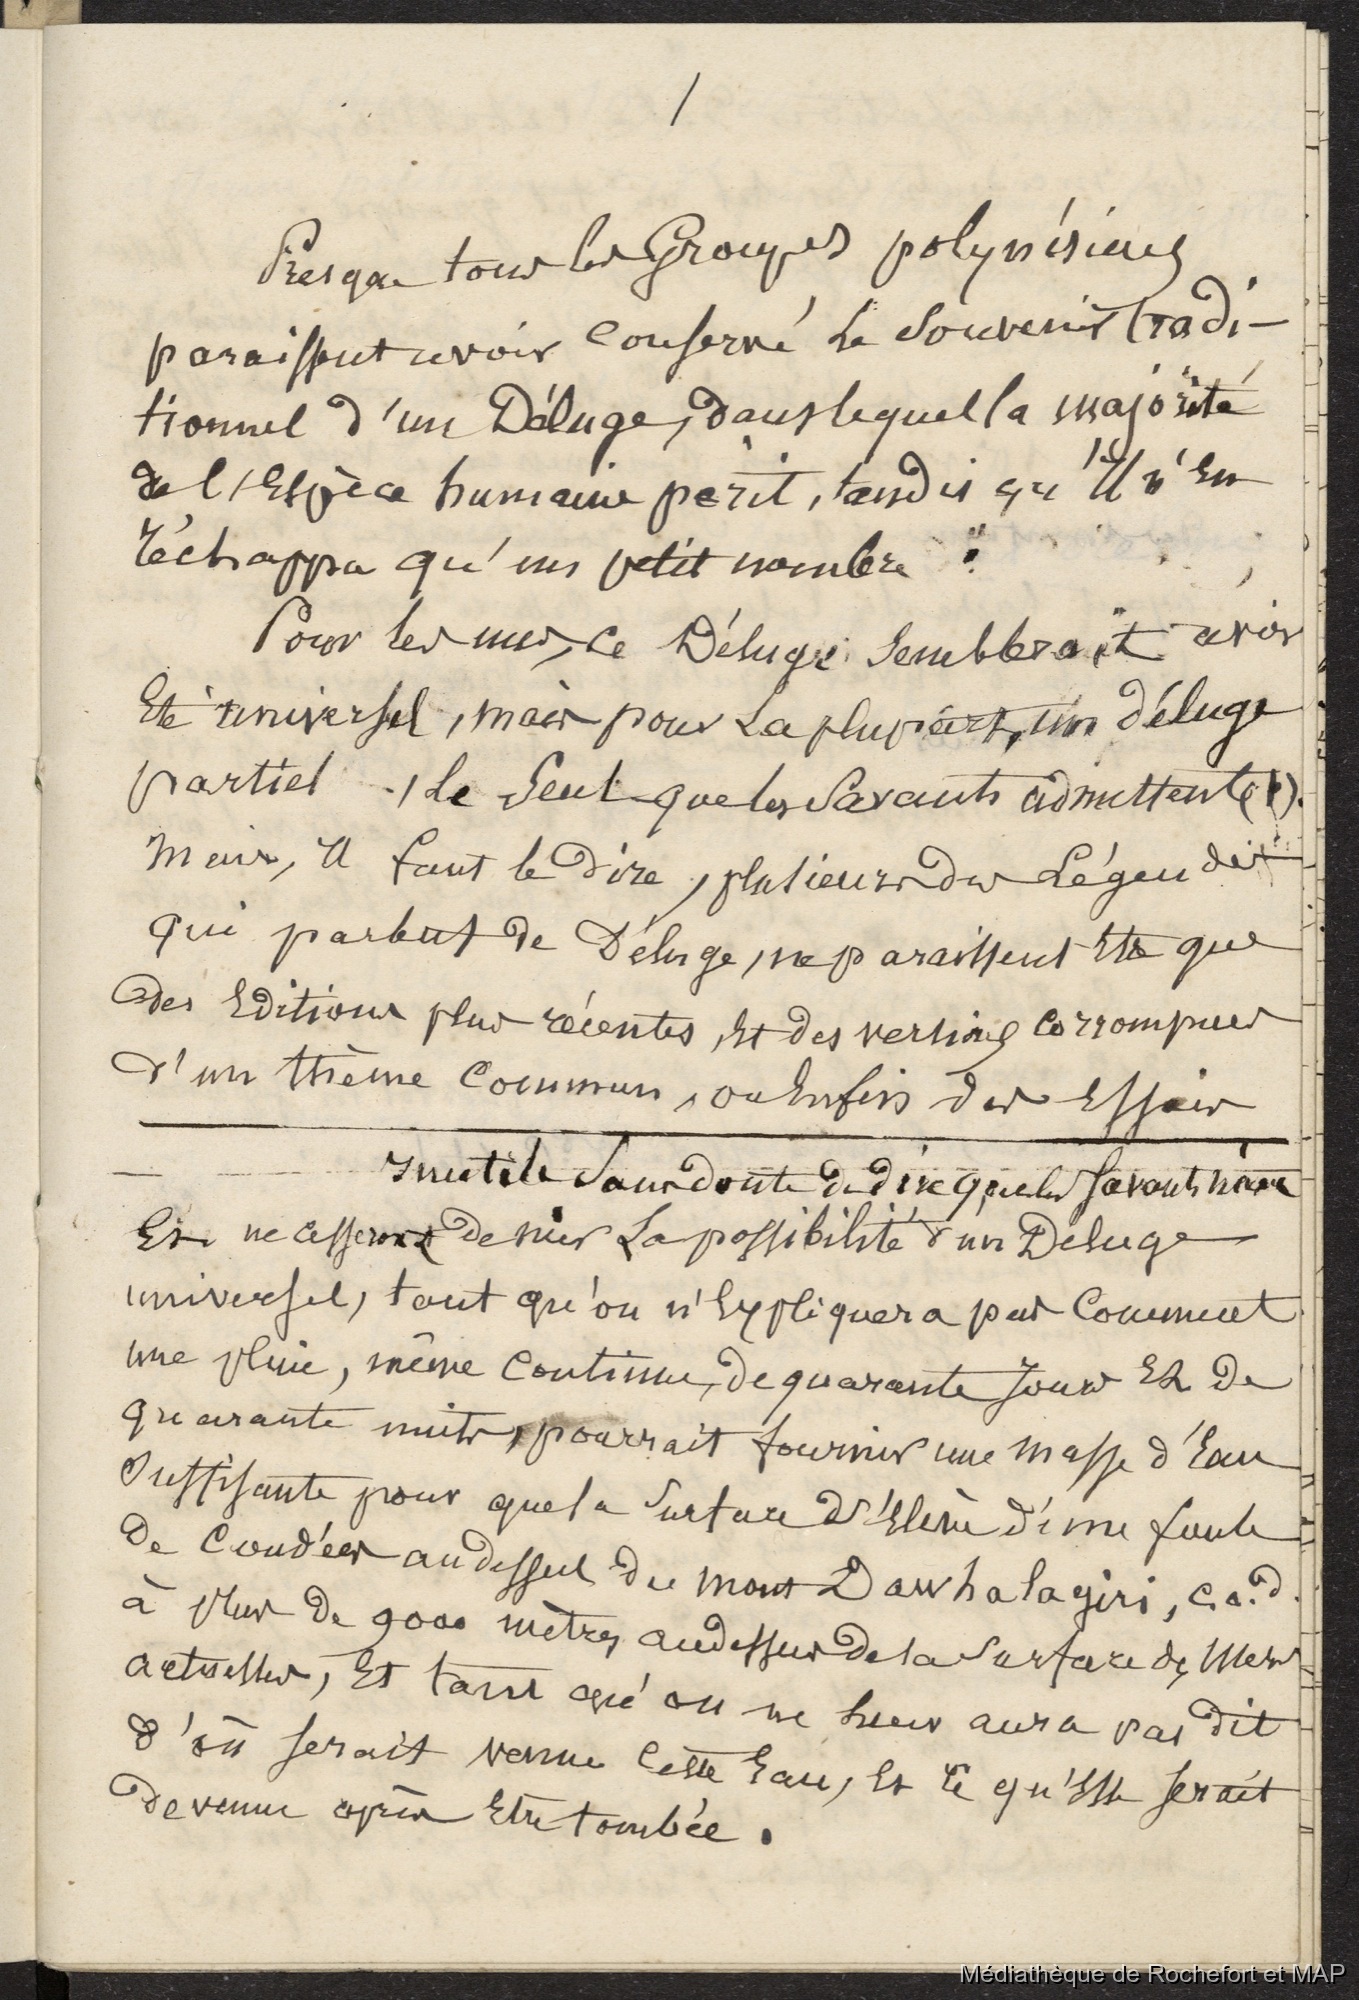 1
Presque tous les Groupes polynésiens
paraissent avoir conservé le souvenir tradi-
tionnel d'un Déluge, dans lequel la majorité
de l'Espèce humaine périt, tandis qu'Il n'En
réchappa qu'un petit nombre.
Pour les uns, ce Déluge semblerait avoir
Eté universel, mais pour la plupart, un déluge
partiel, le seul que les Savants admettent (1).
Mais, Il faut le dire, plusieurs des Légendes
qui parlent de Déluge, ne paraissent Etre que
des Editions plus récentes, Et des versions corrompues
d'un thème commun, ou Enfin des Essais
Inutile sans doute de dire que les savants
ne cesseront de nier la possibilité d'un Deluge
universel, tant qu'on n'Expliquera pas Comment
une pluie, même continue, de quarante jours Et de
quarante nuits, pourrait fournir une masse d'Eau
suffisante pour que la surface s'Elève d'une foule
de Coudées audessus du mont Dawhalagiri, c.a.d.
à plus de 9000 mètres audessus de la surface des Mers
actuelles, Et tant qu'on ne leur aura pas dit
d'où serait venue Cette Eau, Et ce qu'Elle serait
devenue après Etre tombée.
Médiathèque de Rochefort et MAP